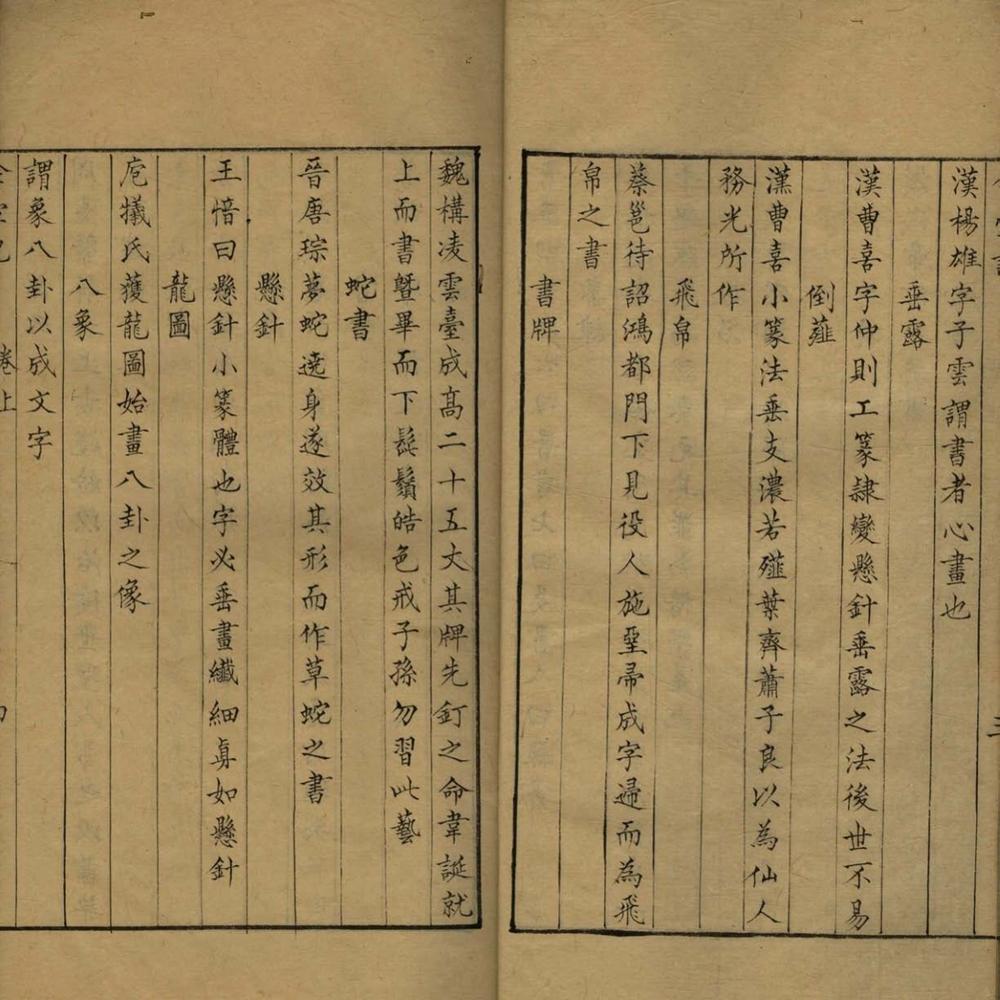 漢楊雄字子雲謂書者心畫也
垂露
漢曹喜字仲則工篆隷變懸針垂露之法後世不易
倒薤
漢曹喜小篆法垂支濃若薤葉齊蕭子良以為仙人
務光所作
飛帛
蔡邕待詔鴻都門下見役人施堊帚成字歸而為飛
帛之書
書牌
魏構凌雲臺成髙二十五丈其牌先釘之命韋誕就
上而書曁畢而下髭鬚皓色戒子孫勿習此藝
蛇書
晉唐琮夢蛇遶身遂效其形而作草蛇之書
懸針
王愔曰懸針小篆體也字必垂畫纖細真如懸針
龍圖
庖犧氏獲龍圖始畫八卦之像
八象
謂象八卦以成文字
卷上